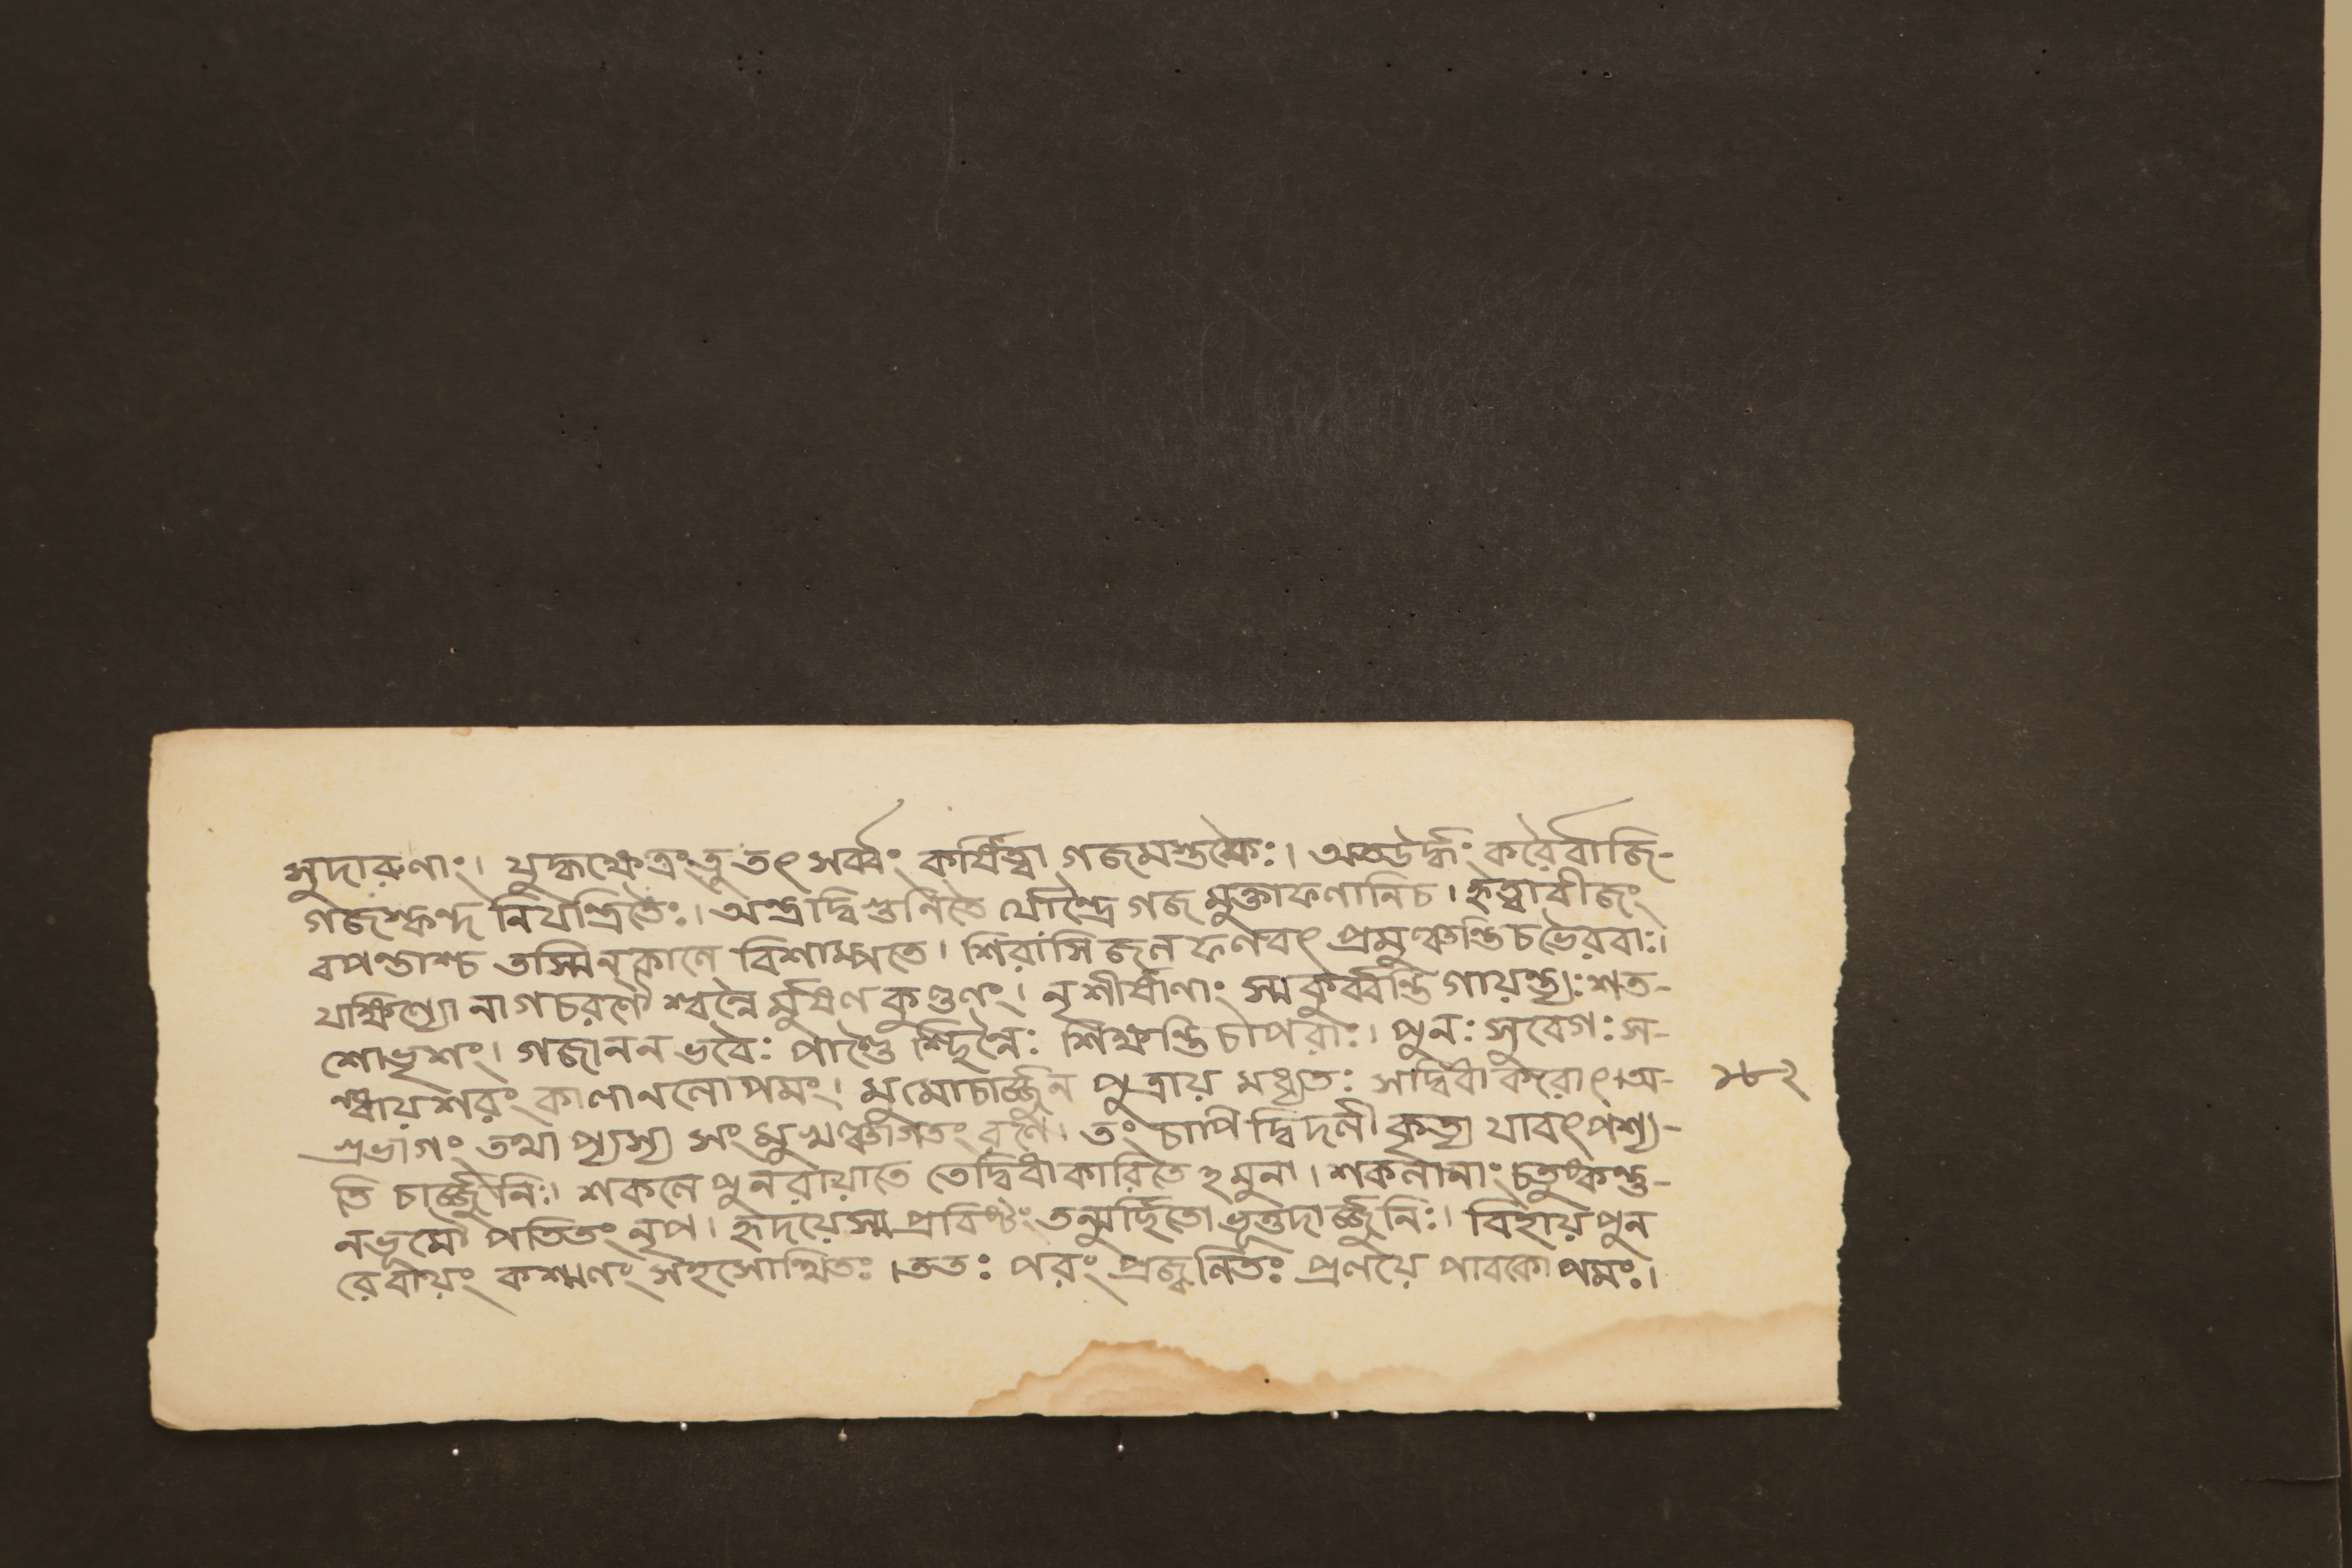 সুদারুণাং। যুদ্ধক্ষেত্রংতু তৎ সর্ব্বং কর্ষিত্বা গজমস্তকৈঃ। অতঊর্দ্ধং করৈর্বাজি-
গজস্কন্দ নিযন্ত্রিতৈঃ। অন্ত্রাদ্বি শুনিতৈ র্যোন্দ্রৈ গজ মুক্তাফলানিচ। হৃত্বাবীজং
বপন্তাশ্চ তস্মিন্‌কালে বিশাম্পতে। শিরাংসি জল ফলবৎ প্রমুঞ্চন্তি চভৈরবাঃ।
যক্ষিণ্যো নাগচরণৈ শ্বল্নৈ র্মুষণ কুণ্ডলং। নৃশীর্ষাণাং স্ম কুর্ব্বন্তি গায়ন্ত্যঃ শত-
শোভৃশং। গজানন ভবৈঃ পাণ্ডৈ শ্ছিন্নৈঃ শিক্ষন্তি চাপরাঃ। পুনঃ সুবেগঃ স-
ন্ধায়শরং কালানলোপমং। মুমোচার্জ্জুন পুত্রায় মধ্যতঃ সদ্বিধা করোৎ।অ- ১৮২
গ্রভাগং তথা প্যস্য সংমুখঞ্চাগতং বলৈ। তং চাপি দ্বিদলী কৃত্য যাবৎপশ্য-
তি চার্জ্জুনিঃ। শকলে পুনরায়াতে তেদ্বিধা কারিতে ঽমুনা। শকলানাং চতুষ্কন্তু-
নভূমৌ পতিতং নৃপ। হৃদয়েস্ম প্রবিষ্টং তন্মূর্ছিতো ভূত্তদার্জ্জুনিঃ। বিহায়পুন
রেবায়ং কশ্মলং সহসোত্থিতঃ। ততঃ পরং প্রজ্বলিতঃ প্রলয়ে পাবকোপমঃ।